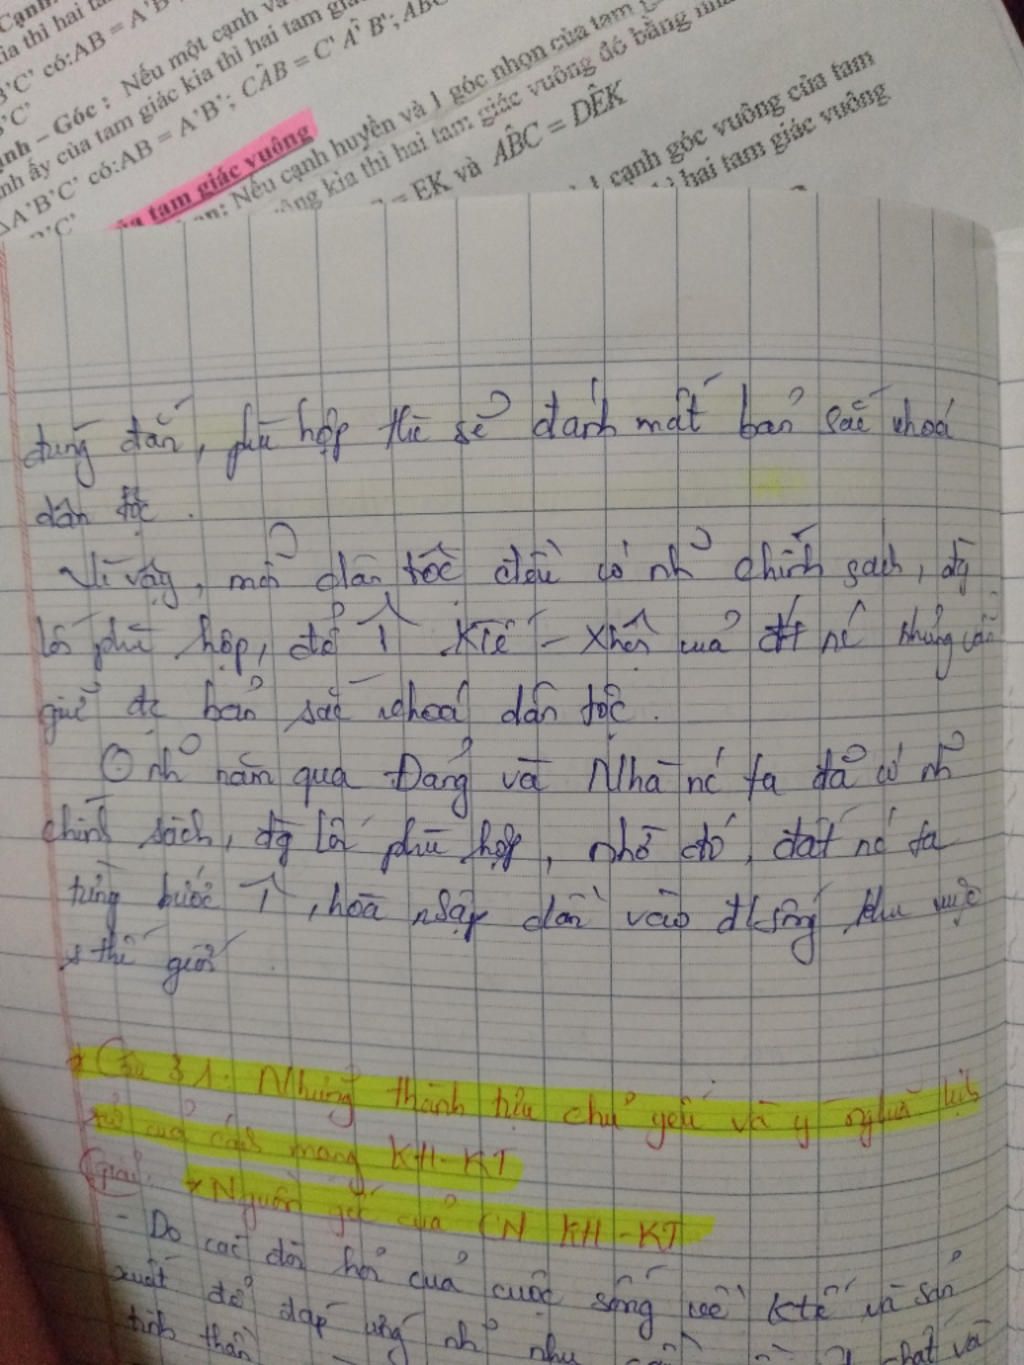 Cạnh
kia thì hai ta
B'C' có:AB = A'B'
B'C'
nh – Góc : Nếu một cạnh và
nh ấy của tam giác kia thì hai tam giá
A'B'C' có:AB = A'B'; CÂB = C'Â'B'; ABC
của tam giác vuông
Nếu cạnh huyền và 1 góc nhọn của tam
vuông kia thì hai tam giác vuông đó bằng nha
= EK và ABC = DEK
1 cạnh góc vuông của tam
hai tam giác vuông
đúng đắn, phù hợp thì sẽ đánh mất bản sắc vhoá
dân tộc.
Vì vậy, mỗi dân tộc đều có nh~ chính sách, đg
lối phù hợp, để ↑ Ktế - Xhội của đất nc nhưng vẫn
giữ đc bản sắc vhoá dân tộc.
Ở nh~ năm qua Đảng và Nhà nc ta đã có nh~
chính sách, đg lối phù hợp, nhờ đó, đất nc ta
từng bước ↑, hoà nhập dần vào đ/sống khu vực
& thế giới.
* Câu 31: Những thành tựu chủ yếu và ý nghĩa lịch
sử của cách mạng KH-KT
Giải: * Nguồn gốc của CM KH-KT
- Do các đòi hỏi của cuộc sống về Ktế và sản
xuất để đáp ứng nh~ nhu
tinh thần chất và